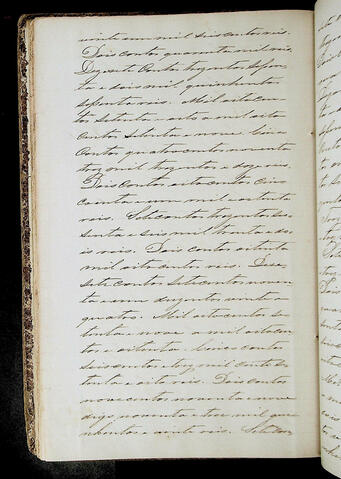 vinte e um mil seis centos reis.
Dois contos quarenta mil reis.
Dezesete Contos trezentos seten
ta e dois mil, quinhentos
setenta reis. Mil oitocen
tos setenta e oito a mil oito
centos setenta e nove. Cinco
Contos quatrocentos noventa
tres mil trezentos e doze reis.
Dois Contos oitocentos cinco
enta e um mil e oitenta
reis. Sete contos trezentos se
senta e seis mil trinta e do
is reis. Dois contos oitenta
mil oito centos reis. Deze
sete contos sete centos noven
ta e um duzentos vinte e
quatro. Mil oitocentos se
tenta e nove a mil oitocen
tos e oitenta. Cinco contos
seis centos e tres mil cento se
tenta e oito reis. Dois contos
nove centos noventa e nove
noventa e tres mil qui
nhentos e vinte reis. Sete con